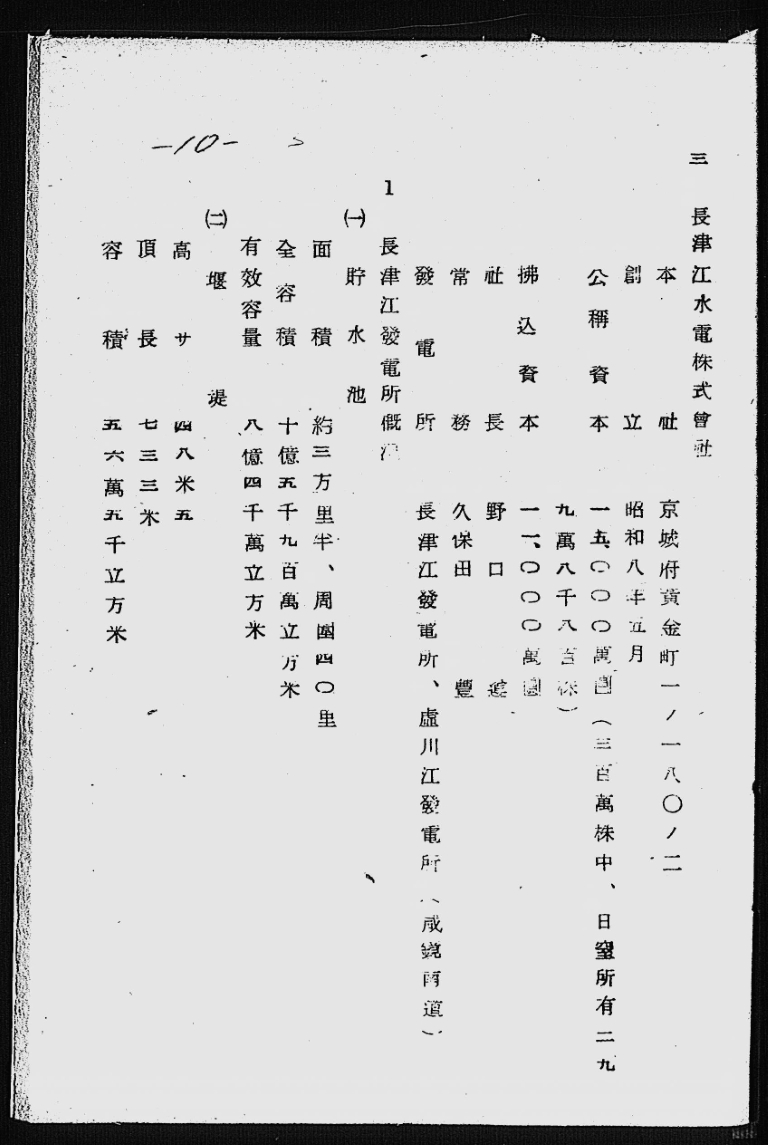 -10-
三 長津江水電株式會社
本社 京城府黄金町一ノ一八〇ノ二
創立 昭和八年五月
公稱資本 一五、〇〇〇萬圓(三百萬株中、日窒所有二九
九萬八千八百株)
拂込資本 一一、〇〇〇萬圓
社長 野口遵
常務 久保田豐
發電所 長津江發電所、虛川江發電所(咸鏡南道)
1 長津江發電所概
㈠ 貯水池
面積 約三方里半、周圍四〇里
全容積 十億五千九百萬立方米
有效容量 八億四千萬立方米
㈡ 堰堤
高サ 四八米五
頂長 七三三米
容積 五六萬五千立方米